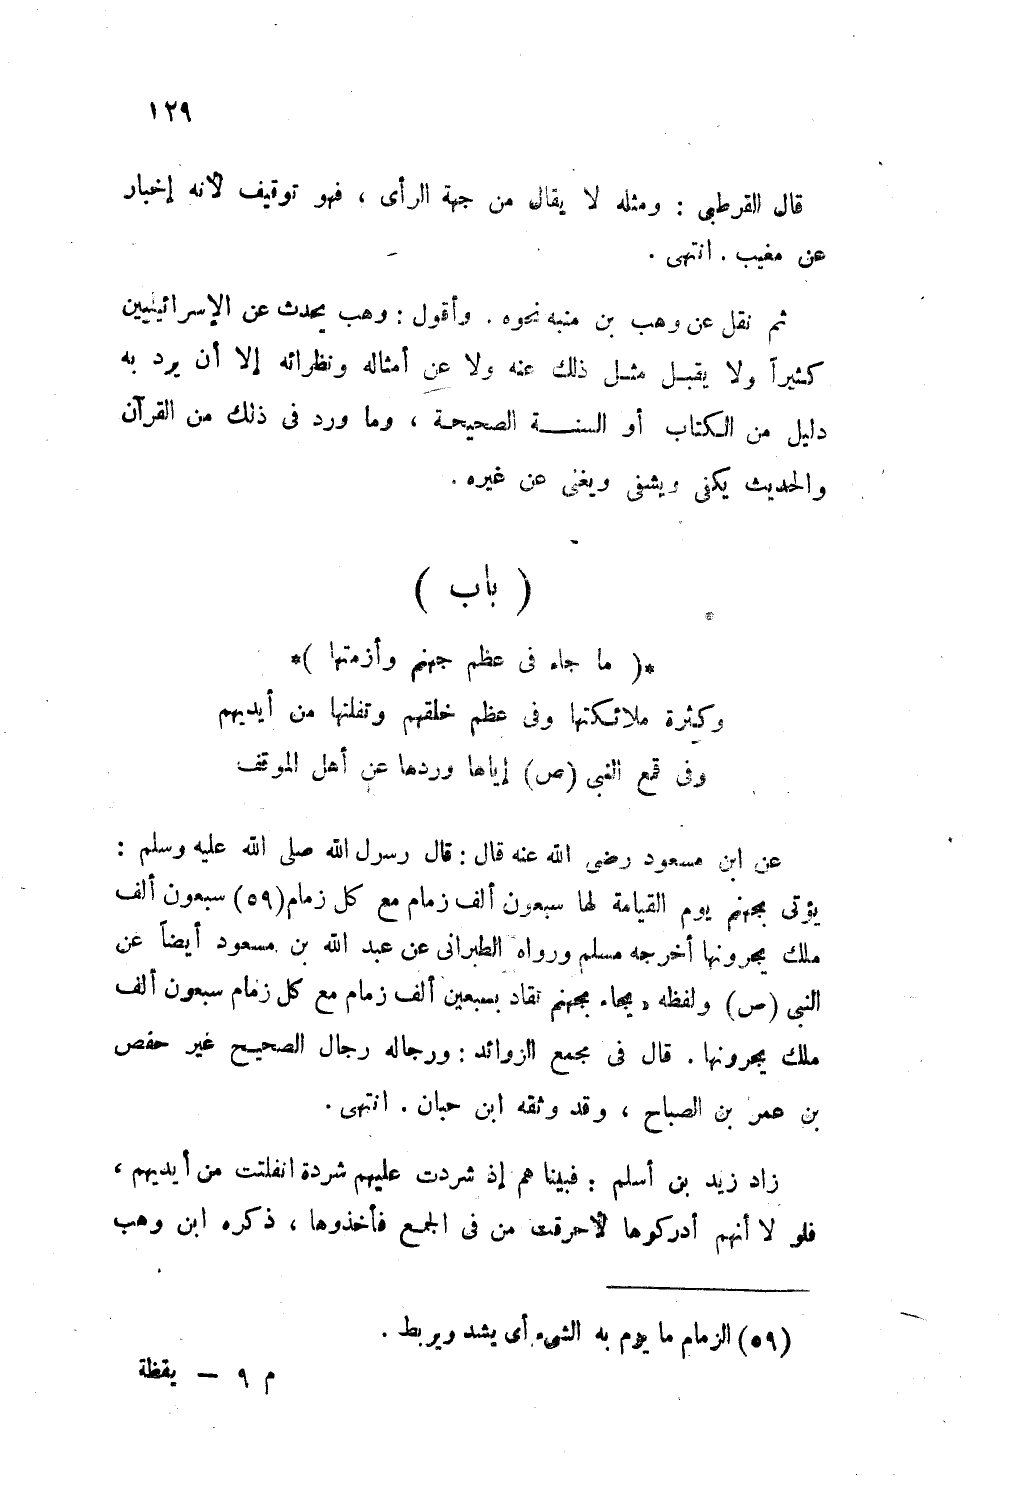 ١٢٩
قال القرطبى : ومثله لا يقال من جهة الرأى ، فهو توقيف لأنه إخبار
عن مغيب . انتهى .
ثم نقل عن وهب بن منبه نحوه . وأقول : وهب يحدث عن الإسرائيليين
كثيراً ولا يقبـل مثـل ذلك عنه ولا عن أمثاله ونظرائه إلا أن يرد به
دليل من الكتاب أو السنـــة الصحيحة ، وما ورد فى ذلك من القرآن
والحديث يكفى ويشفى ويغنى عن غيره .
( باب )
*( ما جاء فى عظم جهنم وأزمتها )*
وكثرة ملائكتها وفى عظم خلقهم وتفلتها من أيديهم
وفى قمع النبى (ص) إياها وردها عن أهل الموقف
عن ابن مسعود رضى الله عنه قال : قال رسول الله صلى الله عليه وسلم :
يؤتى بجهنم يوم القيامة لها سبعون ألف زمام مع كل زمام(٥٩) سبعون ألف
ملك يجرونها أخرجه مسلم ورواه الطبرانى عن عبد الله بن مسعود أيضاً عن
النبى (ص) ولفظه « يجاء بجهنم تقاد بسبعين ألف زمام مع كل زمام سبعون ألف
ملك يجرونها . قال فى مجمع الزوائد : ورجاله رجال الصحيح غير حفص
بن عمر بن الصباح ، وقد وثقه ابن حبان . انتهى .
زاد زيد بن أسلم : فبينا هم إذ شردت عليهم شردة انفلتت من أيديهم ،
فلو لا أنهم أدركوها لأحرقت من فى الجمع فأخذوها ، ذكره ابن وهب
(٥٩) الزمام ما يزم به الشىء أى يشد ويربط .
م ٩ — يقظة